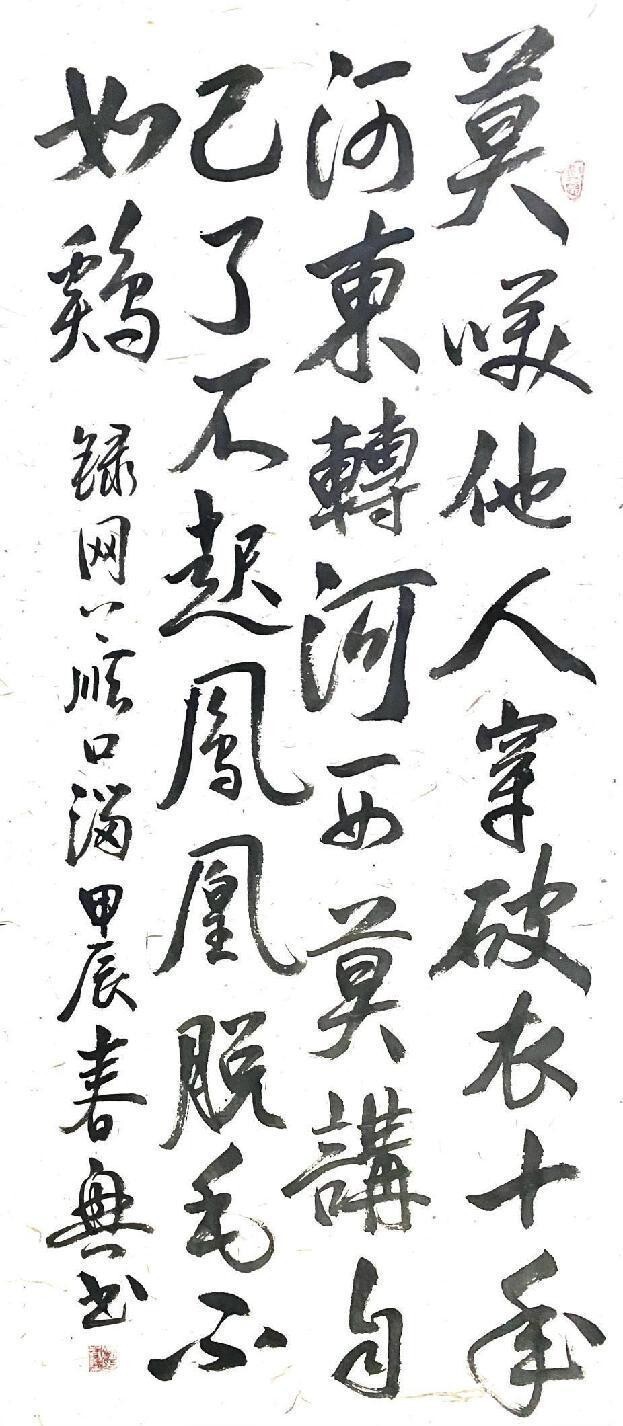 莫咲他人穿破衣十年
河東轉河西莫講自
己了不起鳳凰脱毛不
如鷄 録网上順口溜甲辰春書